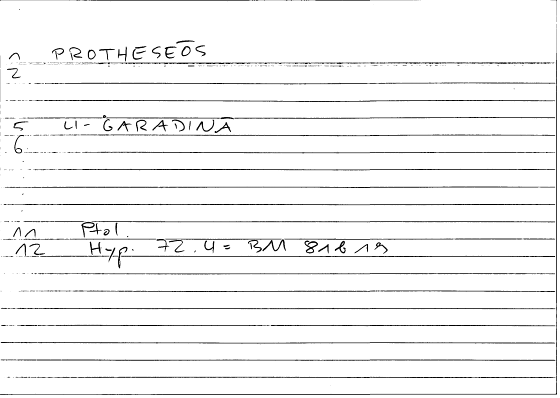 1 PROTHESEŌS
2
5 LI-ĠARADINĀ
6
11 Ptol.
12 Hyp. 72.4 = BM 81b19